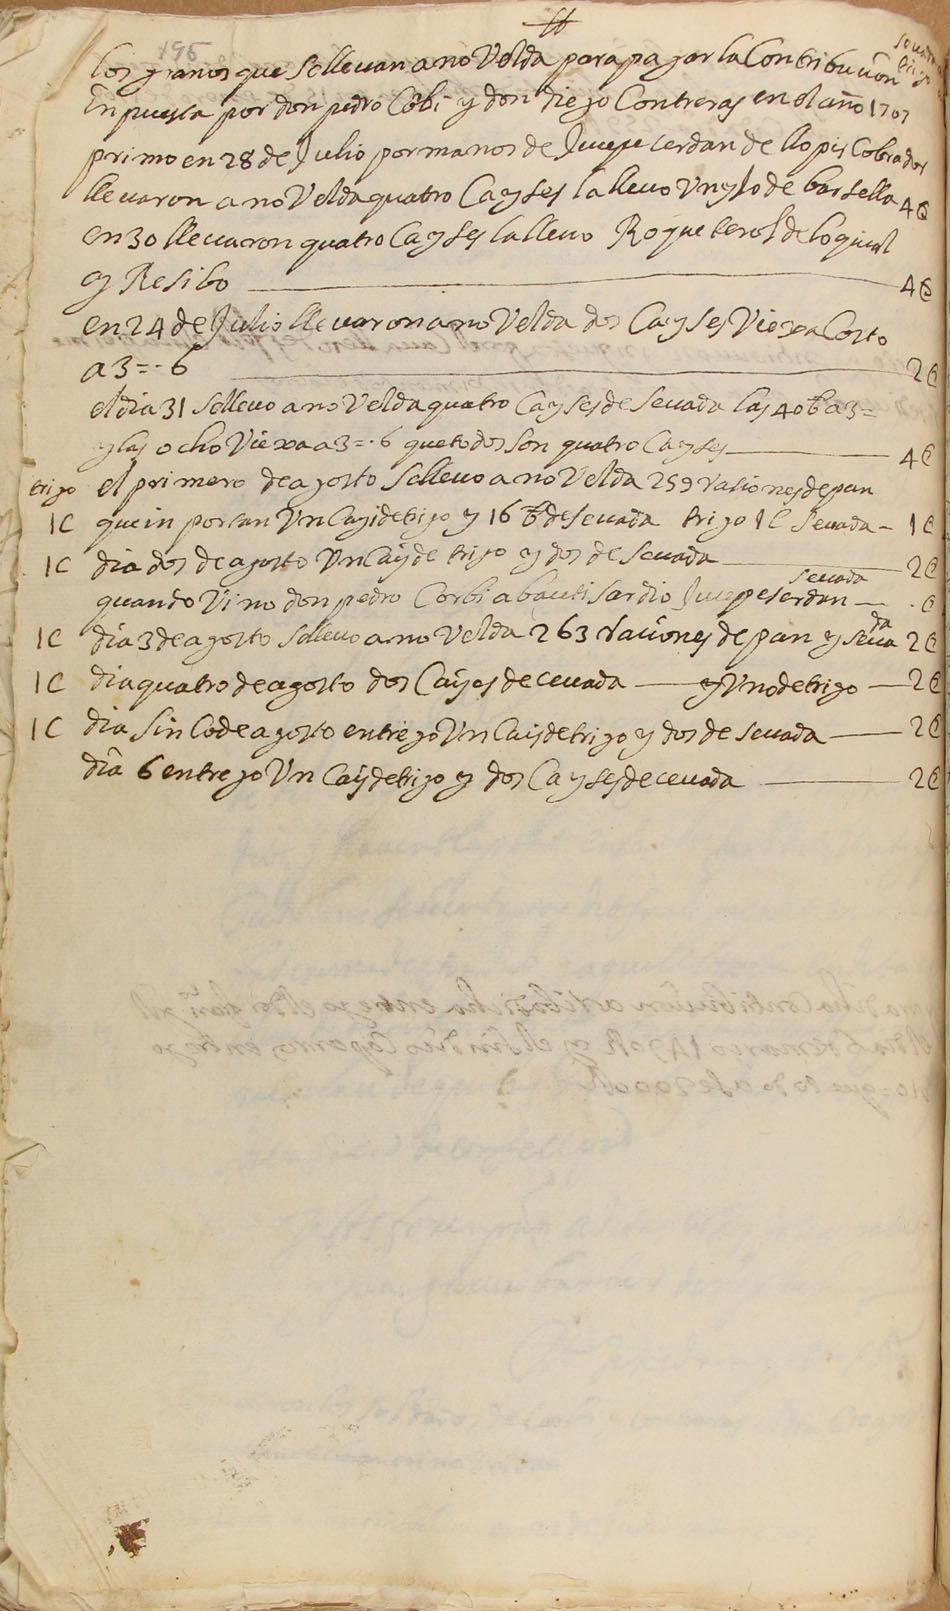 196
los granos que se llevan a no Velda para pagar la Contribucion
Enpuesta por don pedro Cobi y don diego Contreras en el año 1707
primo en 28 de Julio por manos de Jusepe cerdan de llopis Cobrador
llevaron a no Velda quatro Cayses la llevo Un yJo de barsella 4C
en 30 llevaron quatro Cayses la llevo Roque de lo qual
ay Resibo 4C
en 24 de Julio llevaron a no Velda dos Cayses Viexa Costo
a 3=·6 2C
el dia 31 se llevo a no Velda quatro Cayses de Sevada las 40 a 3=
y las ocho Viexa a 3=·6 que todos son quatro Cayses 4C
trigo el primero de agosto se llevo a no Velda 259 rasiones de pan
1C que in portan Un Cays de trigo y 16 de sevada trigo 1C Sevada - 1C
1C dia dos de agosto Un Cays de trigo y dos de sevada 2C
sevada
quando Vino don pedro Corbi a bautisar dio Jusepe serdan - . C
1C dia 3 de agosto se llevo a no Velda 263 raciones de pan y seva da 2C
1C dia quatro de agosto dos Cayses de cevada y Uno de trigo 2C
1C dia Sinco de agosto entrego Un Cays de trigo y dos de sevada 2C
dia 6 entrego Un Cays de trigo y dos Cayses de cevada 2C